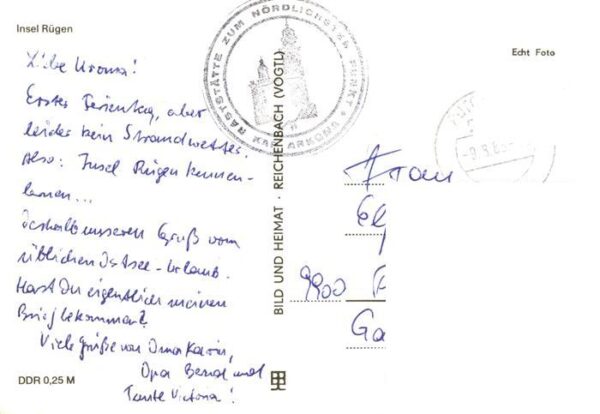 Insel Rügen
Liebe Uroma!
Erster Ferientag, aber
leider kein Strandwetter.
Also: Insel Rügen kennen-
lernen...
Deshalb unseren Gruß vom
üblichen Ostsee-Urlaub.
Hast Du eigentlich meinen
Brief bekommen?
Viele Grüße von Oma Karin,
Opa Bernd und
Tante Victoria!
DDR 0,25 M
RASTSTÄTTE ZUM NÖRDLICHSTEN PUNKT
KAP ARKONA
BILD UND HEIMAT · REICHENBACH (VOGTL)
Echt Foto
Frau
9900
Ga